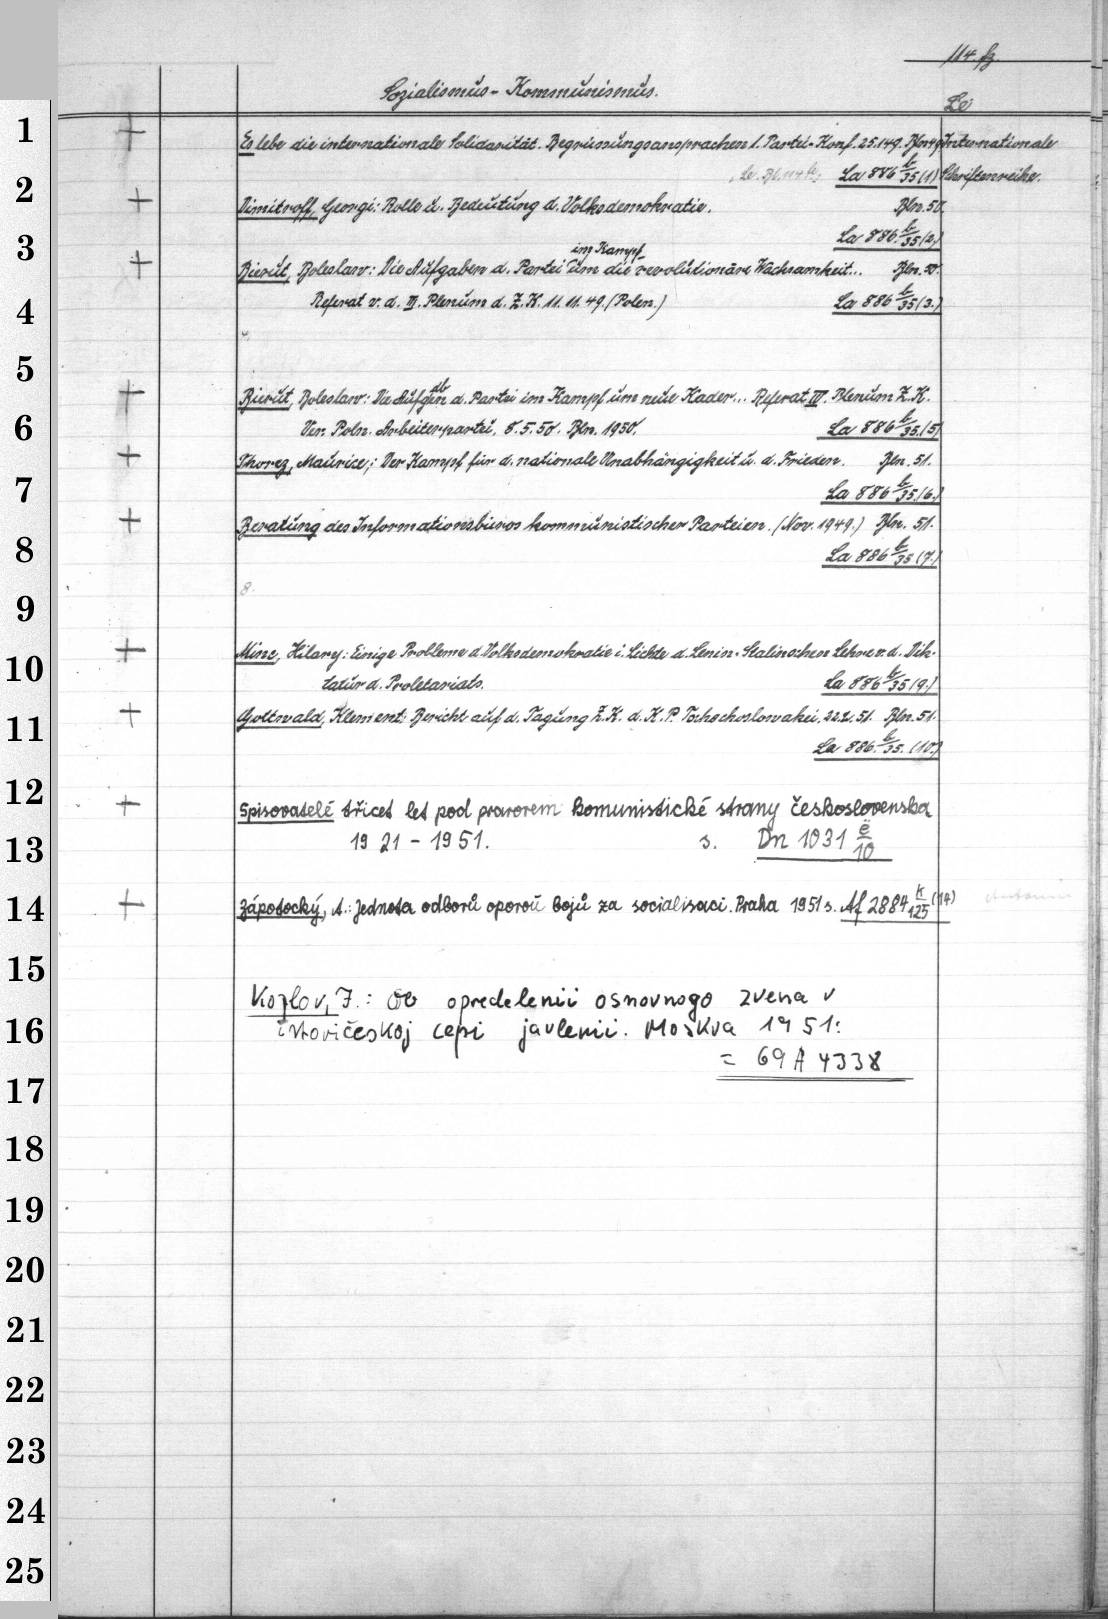 114. fz.
Sozialismus - Kommunismus.
Le
1
+ Es lebe die internationale Solidarität. Begrüssungsansprachen 1. Partei-Konf. 25.1.49. Bln 49 Internationale
La 886 b/35 (1) Schriftenreihe.
2
+ Dimitroff, Georgi: Rolle u. Bedeutung d. Volksdemokratie. Bln. 50.
La 886 b/35 (2.)
3
im Kampf
+ Bierut, Boleslaw: Die Aufgaben d. Partei um die revolutionäre Wachsamkeit... Bln. 50.
Referat v. d. III. Plenum d. Z.K. 11. 11. 49. (Polen.)
La 886 b/35 (3.)
4
5
+ Bierut, Boleslaw: Die Aufgben d. Partei im Kampf um neue Kader... Referat IV. Plenum Z.K.
6
Ver. Poln. Arbeiterpartei, 8. 5. 50. Bln. 1950.
La 886 b/35. (5)
+ Thorez, Maurice,: Der Kampf für d. nationale Unabhängigkeit u. d. Frieden. Bln. 51.
7
La 886 b/35. (6.)
+ Beratung des Informationsbüros kommunistischer Parteien. (Nov. 1949.) Bln. 51.
8
La 886 b/35 (7.)
8.
9
+ Minc, Hilary: Einige Probleme d. Volksdemokratie i. Lichte d. Lenin-Stalinschen Lehre v. d. Dik-
10
tatur d. Proletariats.
La 886 b/35 (9.)
+ Gottwald, Klement: Bericht auf d. Tagung Z.K. d. K.P. Tschechoslowakei, 22.2.51. Bln. 51.
11
La 886. b/35. (10.)
12
+ Spisovatelé třicet let pod praporem komunistické strany československa
13
1921 - 1951. s. Dn 1031 ë/10
14
+ Zápotocký, A.: Jednota odborů oporou bojů za socialisaci. Praha 1951 s. Af 2884 k/125 (14)
15
Kozlov, J.: Ob opredelenii osnovnogo zvena v
16
istoričeskoj cepi javlenii. Moskva 1951:
= 69 A 4338
17
18
19
20
21
22
23
24
25